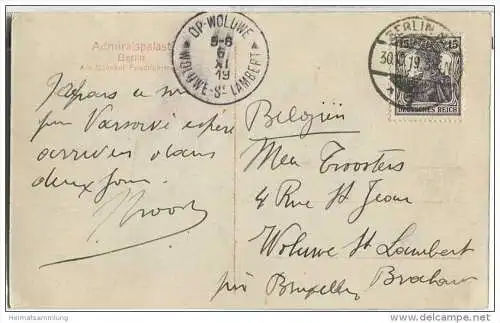 Admiralspalast
Berlin
Am Bahnhof Friedrichstr.
OP-WOLUWE
5-6
6
XI
19
WOLUWE-St LAMBERT
BERLIN
30.10.19
15 15
DEUTSCHES REICH
Je pars ce soir
pour Varsovie espère
arriver dans
deux jours
Belgien
Troosters
4 Rue St Jean
Woluwe St Lambert
près Bruxelles Brabant
Heimatsammlung
© www.ansichtskartenhandel.de